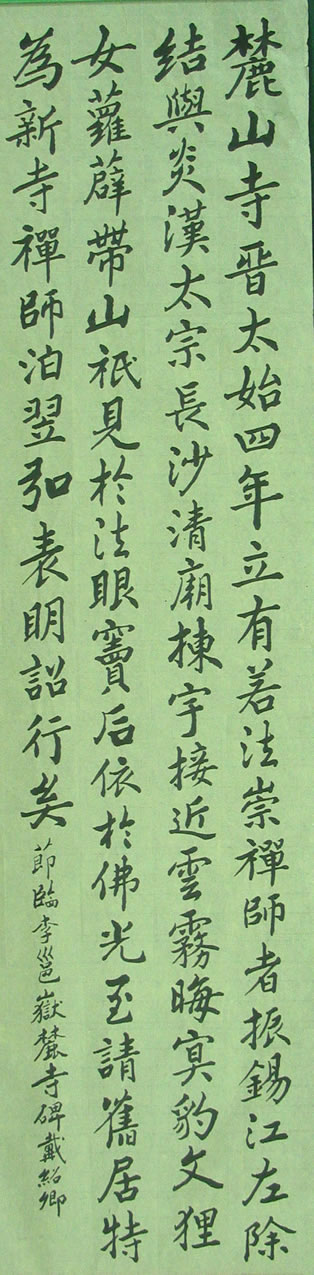 麓山寺晉太始四年立有若法崇禪師者振錫江左除
結與炎漢太宗長沙清廟揀宇接近雲霧晦冥豹文狸
女蘿薜帶山祇見於法眼竇后依於佛光至請舊居特
為新寺禪師洎翌弘表明詔行矣
節臨李邕嶽麓寺碑戴紹卿